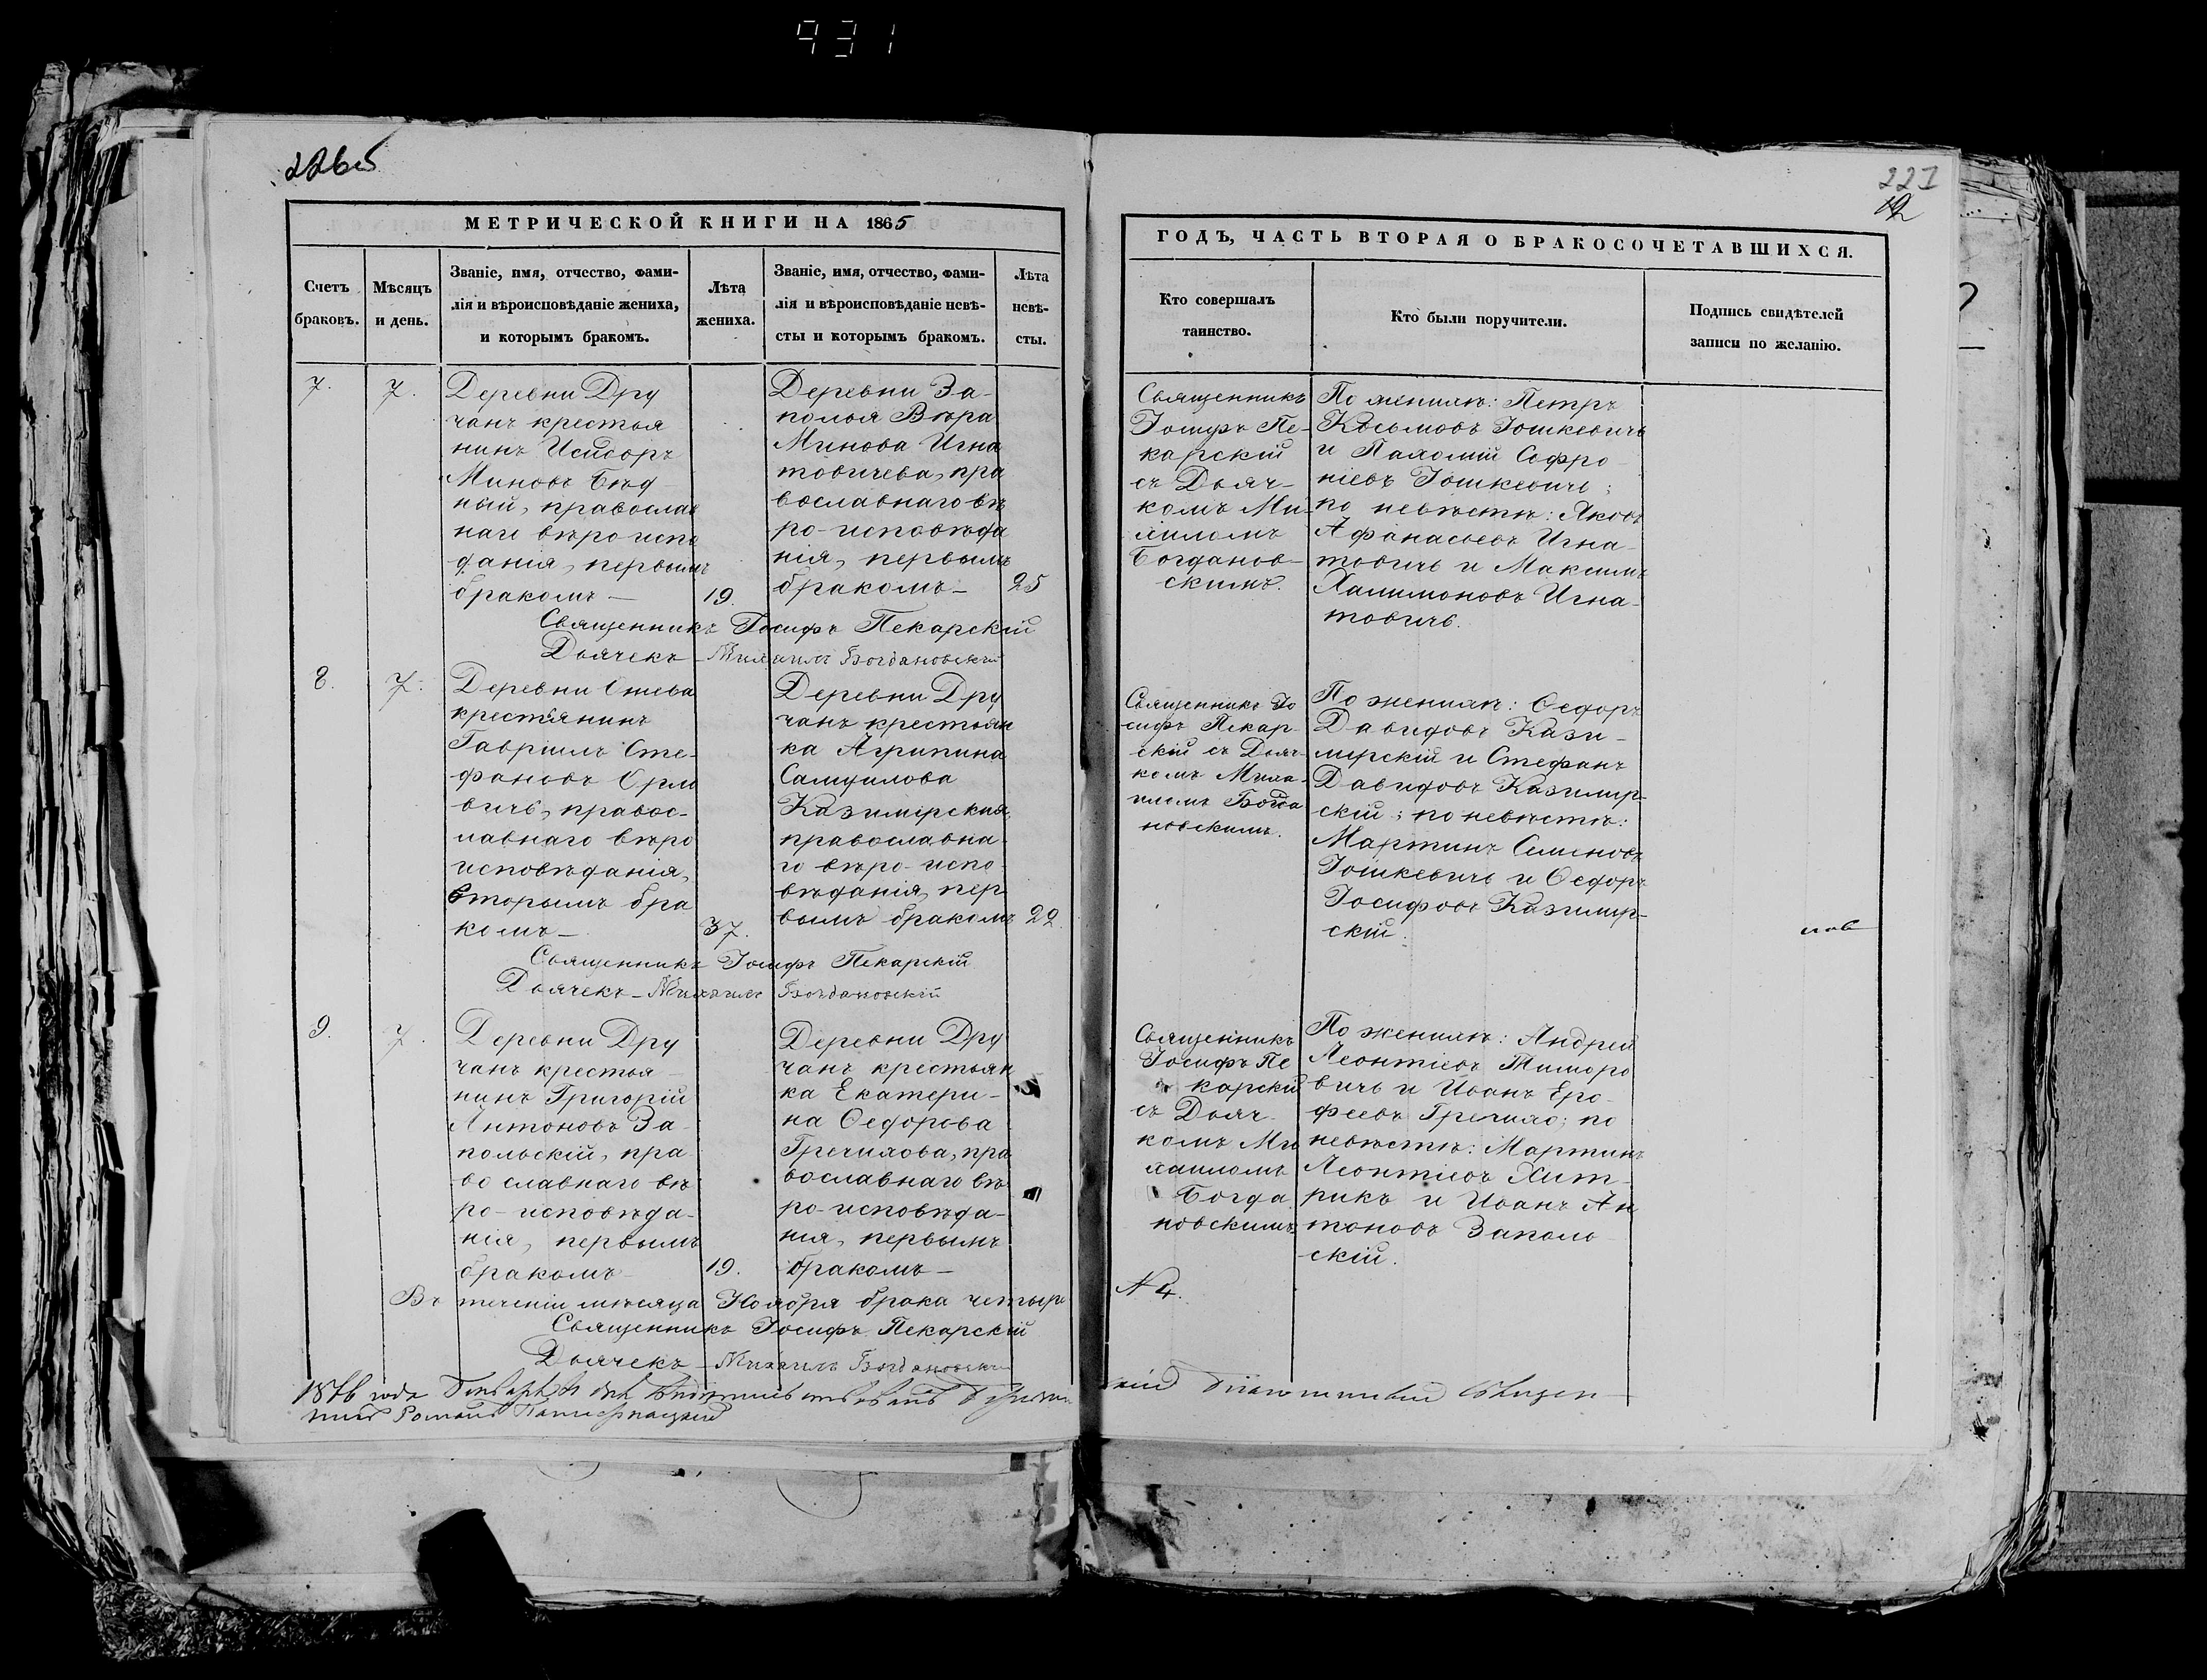 931
226об
221
12
МЕТРИЧЕСКОЙ КНИГИ НА 1865
ГОДЪ, ЧАСТЬ ВТОРАЯ О БРАКОСОЧЕТАВШИХСЯ.
Счетъ
браковъ.
Мѣсяцъ
и день.
Званіе, имя, отчество, фами-
лія и вѣроисповѣданіе жениха,
и которымъ бракомъ.
Лѣта
жениха.
Званіе, имя, отчество, фами-
лія и вѣроисповѣданіе невѣ-
сты и которымъ бракомъ.
Лѣта
невѣ-
сты.
Кто совершалъ
таинство.
Кто были поручители.
Подпись свидѣтелей
записи по желанію.
7.
7.
Деревни Дру
чанъ крестья
нинъ Исидоръ
Миновъ Бѣд-
ный, православ
наго вѣроиспо
данія, первымъ
бракомъ —
19.
Деревни За-
полья Вѣра
Минова Игна
товичева, пра
вославнаго вѣ
ро-исповѣда
нія, первымъ
бракомъ —
25
Священникъ
Іосифъ Пе-
карскій
съ Дьяч-
комъ Ми-
хаиломъ
Богданов-
скимъ.
По женихѣ: Петръ
Косьмовъ Іошкевичъ
и Пахомій Софро-
ніевъ Іошкевичъ;
по невѣстѣ: Яковъ
Афанасьевъ Игна-
товичъ и Максимъ
Халимоновъ Игна-
товичъ.
Священникъ Іосифъ Пекарскій
Дьячекъ — Михаилъ Богдановскій
8.
7.
Деревни
крестьянинъ
Гавріилъ Сте-
фановъ Орло
вичъ, правос-
лавнаго вѣро
исповѣданія,
вторымъ бра
комъ —
37.
Деревни Дру
чанъ крестьян
ка Агрипина
Самуилова
Казимірская,
православна-
го вѣро-испо-
вѣданія, пер
вымъ бракомъ
22.
Священникъ Іо
сифъ Пекар-
скій съ Дьяч-
комъ Миха-
иломъ Богда
новскимъ.
По женихѣ: Ѳедоръ
Давидовъ Кази-
мірскій и Стефанъ
Давидовъ Казимір-
скій; по невѣстѣ:
Мартинъ Семеновъ
Іошкевичъ и Ѳедоръ
Іосифовъ Казимір-
скій.
Священникъ Іосифъ Пекарскій
Дьячекъ — Михаилъ Богдановскій
9.
7.
Деревни Дру
чанъ крестья-
нинъ Григорій
Антоновъ За-
польскій, пра
во славнаго вѣ
ро-исповѣда-
нія, первымъ
бракомъ —
19.
Деревни Дру
чанъ крестьян
ка Екатери-
на Ѳедорова
Гречихова, пра
вославнаго вѣ
ро-исповѣда-
нія, первымъ
бракомъ —
Священникъ
Іосифъ Пе
карскій
съ Дьяч-
комъ Ми
хаиломъ
Богда
новскимъ
По женихѣ: Андрей
Леонтіевъ
вичъ и Иванъ Еро-
феевъ Гречихо; по
невѣстѣ: Мартинъ
Леонтіевъ Хит-
рикъ и Иванъ Ан
тоновъ Заполь
скій.
Въ теченіи мѣсяца Ноября брака четыре
№ 4.
Священникъ Іосифъ Пекарскій
Дьячекъ — Михаилъ Богдановскій
1876 года
Романъ